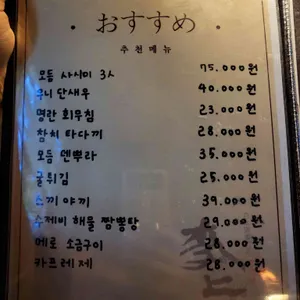 · おすすめ ·
추천메뉴
모듬 사시미 3人 75.000원
우니 단새우 40.000원
명란 회무침 23.000원
참치 타다끼 28.000원
모듬 덴뿌라 35.000원
굴튀김 25.000원
스끼 야끼 39.000원
수제비 해물 짬뽕탕 29.000원
메로 소금구이 28.000원
카프레제 28.000원